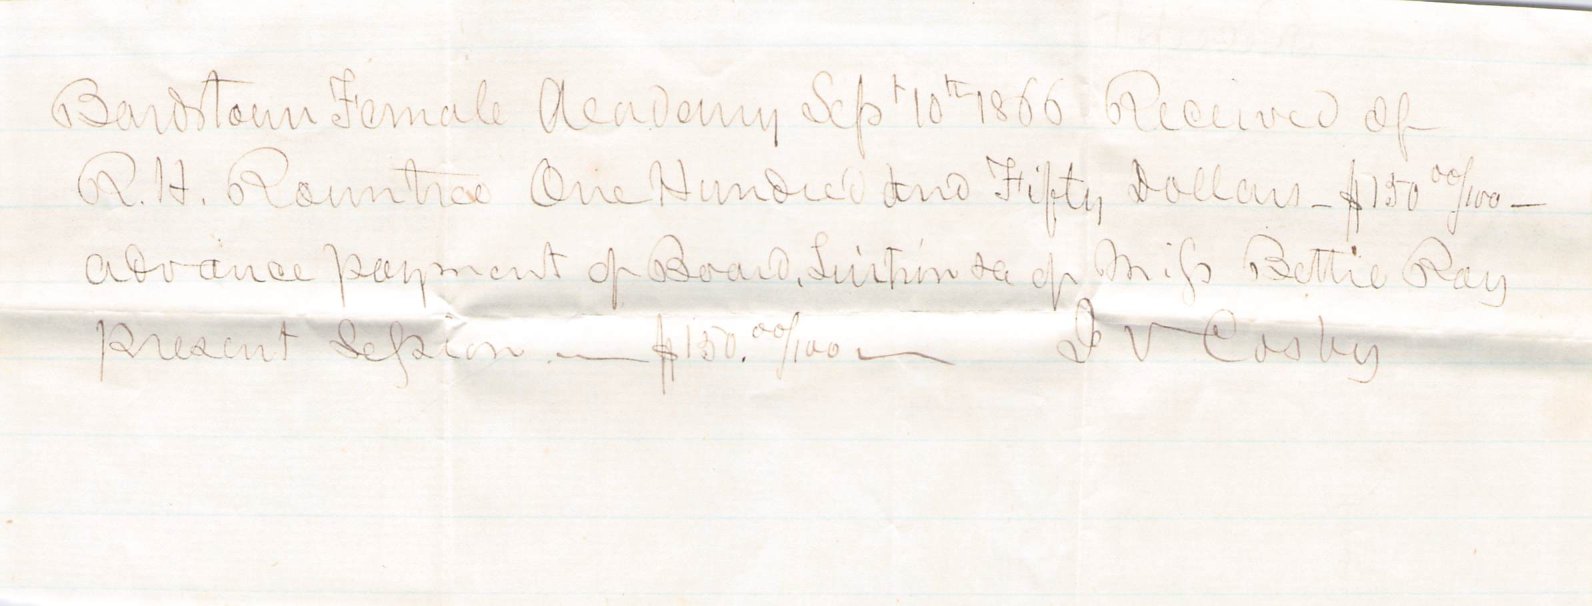 Bardstown Female Academy Sept 10th 1866 Received of
R. H. Rowntree One Hundred and Fifty Dollars – $150 00/100 –
advance payment of Board, Tuition &c of Miss Bettie Ray
present Session — $150.00/100 — J V Cosby